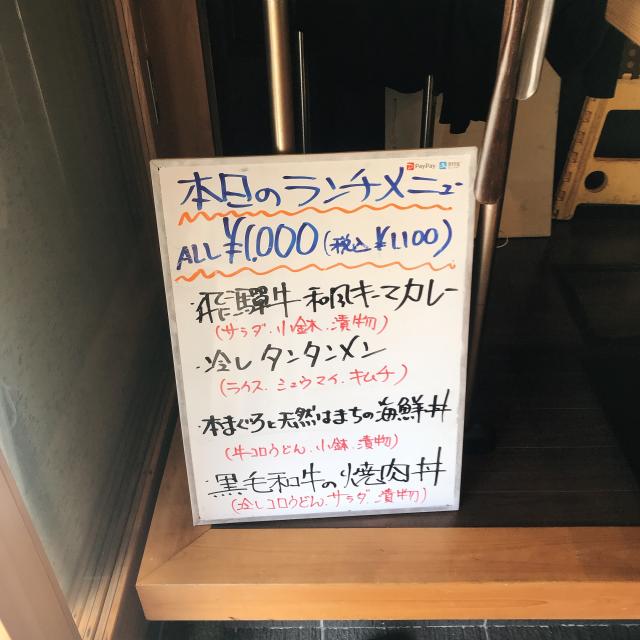 PayPay
本日のランチメニュー
ALL ¥1,000(税込¥1,100)
・飛騨牛和風キーマカレー
(サラダ.小鉢.漬物)
・冷しタンタンメン
(ライス.シュウマイ.キムチ)
・本まぐろと天然はまちの海鮮丼
(牛コロうどん.小鉢.漬物)
・黒毛和牛の焼肉丼
(冷しコロうどん.サラダ.漬物)